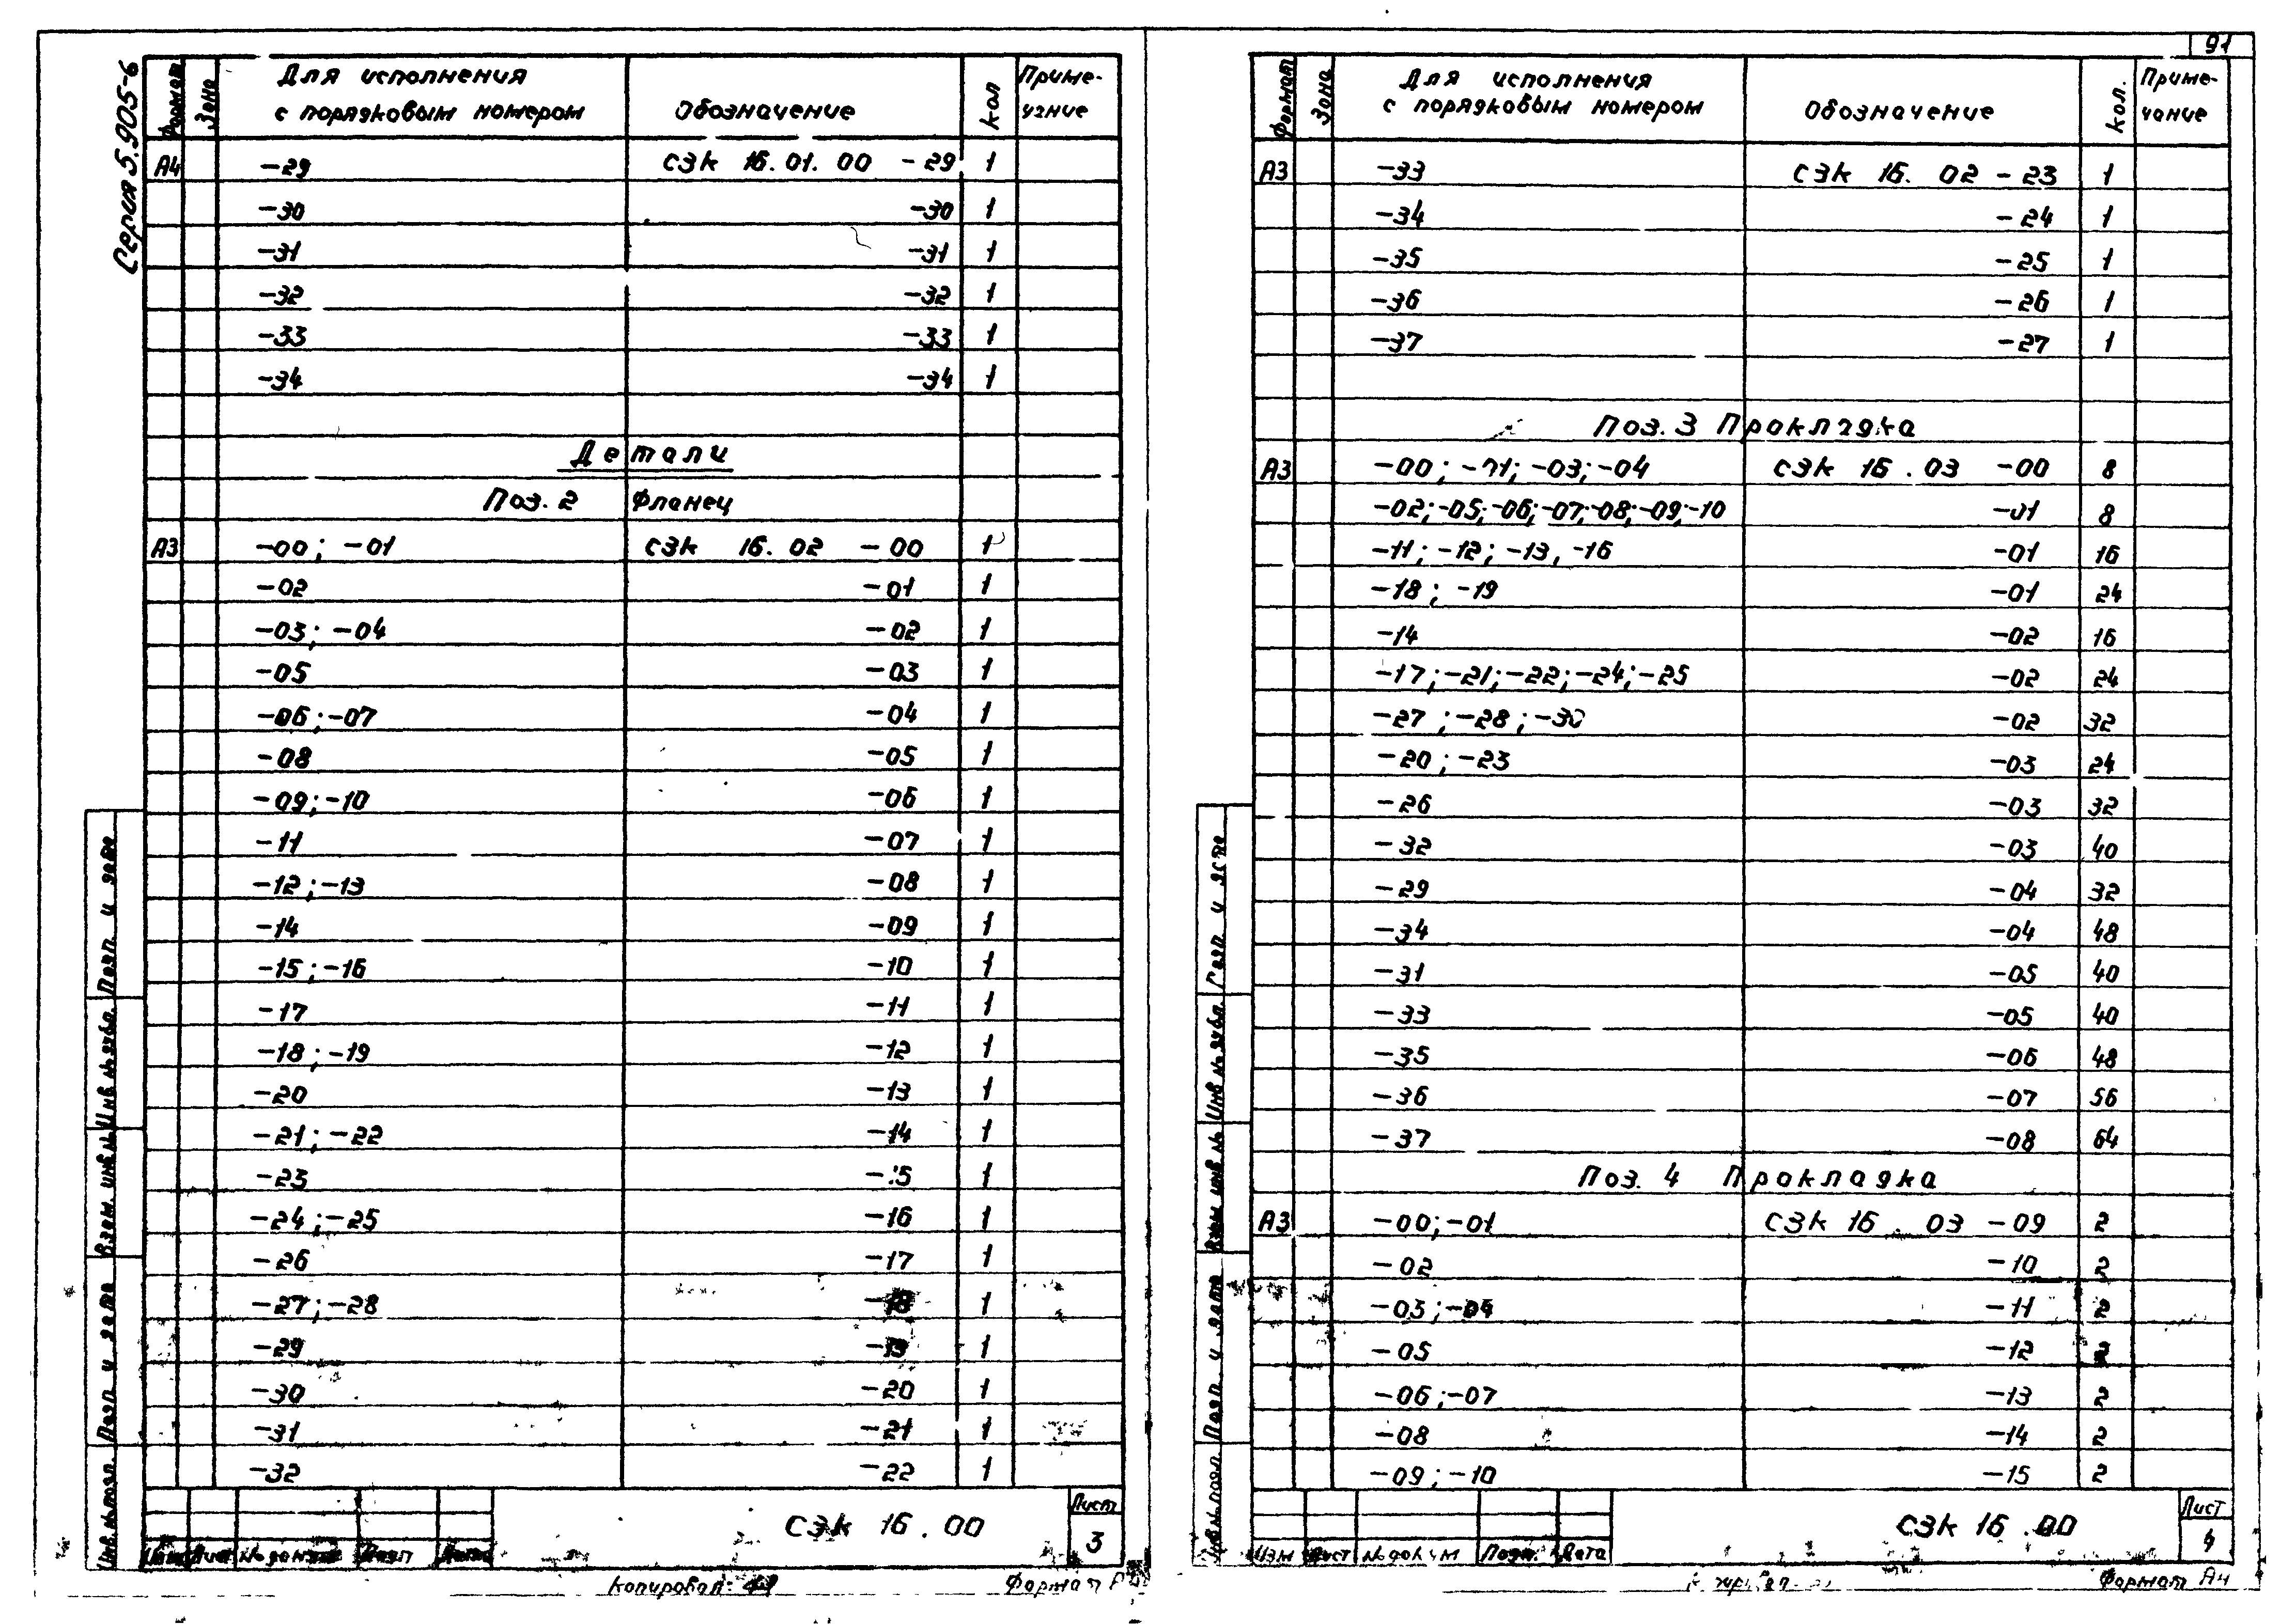 91
Серия 5.905-6
Формат Зона Для исполнения с порядковым номером Обозначение Кол Приме-чание
А4 -29 СЗК 16.01.00 -29 1
-30 -30 1
-31 -31 1
-32 -32 1
-33 -33 1
-34 -34 1
Детали
Поз. 2 Фланец
А3 -00; -01 СЗК 16.02 -00 1
-02 -01 1
-03; -04 -02 1
-05 -03 1
-06; -07 -04 1
-08 -05 1
-09; -10 -06 1
-11 -07 1
-12; -13 -08 1
-14 -09 1
-15; -16 -10 1
-17 -11 1
-18; -19 -12 1
-20 -13 1
-21; -22 -14 1
-23 1
-24; -25 -16 1
-26 -17 1
-27; -28 -18 1
-29 -19 1
-30 -20 1
-31 -21 1
-32 -22 1
Подп. и дата
Инв. № дубл.
Взам. инв. №
Подп. и дата
Инв. № подл.
Лист № докум Подп Дата
СЗК 16.00
Лист
3
Копировал:
Формат
Формат Зона Для исполнения с порядковым номером Обозначение Кол. Приме-чание
А3 -33 СЗК 16.02 -23 1
-34 -24 1
-35 -25 1
-36 -26 1
-37 -27 1
Поз. 3 Прокладка
А3 -00; -01; -03; -04 СЗК 16.03 -00 8
-02; -05; -06; -07; -08; -09; -10 -01 8
-11; -12; -13, -16 -01 16
-18; -19 -01 24
-14 -02 16
-17; -21; -22; -24; -25 -02 24
-27; -28; -30 -02 32
-20; -23 -03 24
-26 -03 32
-32 -03 40
-29 -04 32
-34 -04 48
-31 -05 40
-33 -05 40
-35 -06 48
-36 -07 56
-37 -08 64
Поз. 4 Прокладка
А3 -00; -01 СЗК 16.03 -09 2
-02 -10 2
-03; -04 -11 2
-05 -12 2
-06; -07 -13 2
-08 -14 2
-09; -10 -15 2
Подп. и дата
Инв. № дубл.
Взам. инв. №
Подп. и дата
Инв. № подл.
Изм Лист № докум Подп. Дата
СЗК 16.00
Лист
4
Формат А4